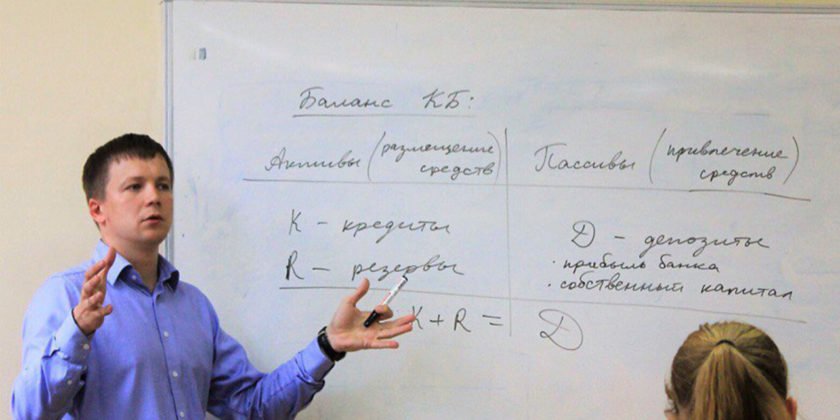 Баланс КБ:
Активы (размещение средств)
Пассивы (привлечение средств)
К – кредиты
R – резервы
D – депозиты
· прибыль банка
· собственный капитал
K + R = D